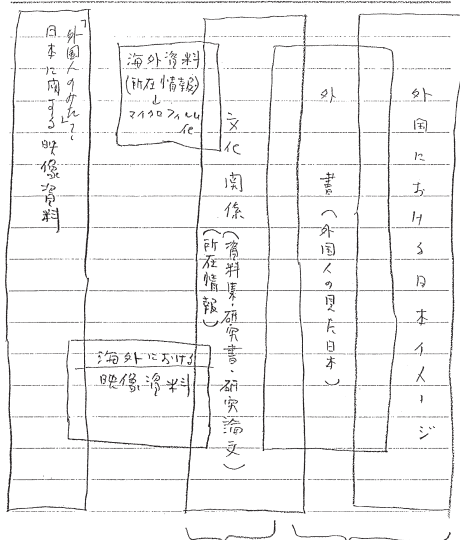 外国における日本イメージ
外　書（外国人の見た日本）
文化関係（資料集・研究書・研究論文）
（所在情報）
海外資料
（所在情報）
↓
マイクロフィルム
化
海外における
映像資料
「外国人のみた」
日本に関する映像資料